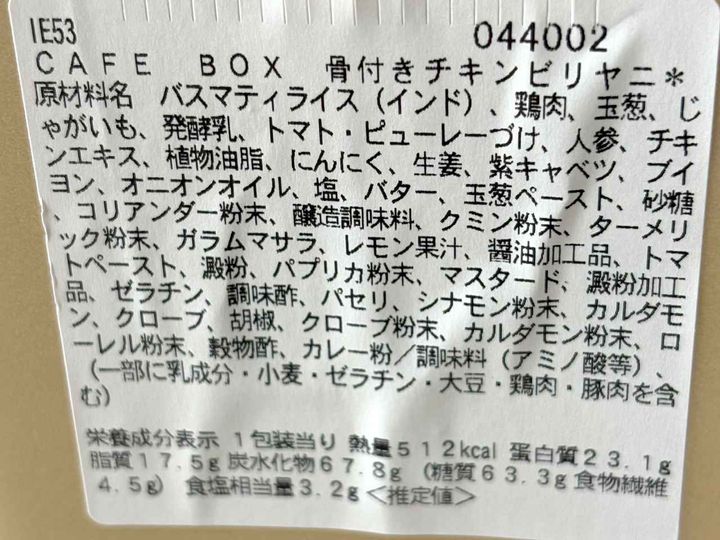 IE53 044002
CAFE BOX 骨付きチキンビリヤニ*
原材料名 バスマティライス(インド)、鶏肉、玉葱、じ
ゃがいも、発酵乳、トマト・ピューレーづけ、人参、チキ
ンエキス、植物油脂、にんにく、生姜、紫キャベツ、ブイ
ヨン、オニオンオイル、塩、バター、玉葱ペースト、砂糖
、コリアンダー粉末、醸造調味料、クミン粉末、ターメリ
ック粉末、ガラムマサラ、レモン果汁、醤油加工品、トマ
トペースト、澱粉、パプリカ粉末、マスタード、澱粉加工
品、ゼラチン、調味酢、パセリ、シナモン粉末、カルダモ
ン、クローブ、胡椒、クローブ粉末、カルダモン粉末、ロ
ーレル粉末、穀物酢、カレー粉/調味料(アミノ酸等)、
(一部に乳成分・小麦・ゼラチン・大豆・鶏肉・豚肉を含
む)
栄養成分表示 1包装当り 熱量512kcal 蛋白質23.1g
脂質17.5g 炭水化物67.8g (糖質63.3g 食物繊維
4.5g) 食塩相当量3.2g <推定値>